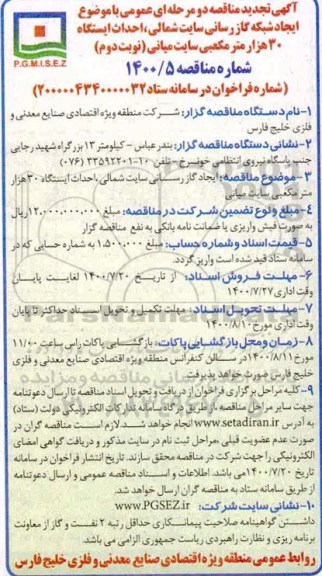 آگهی تجدید مناقصه دو مرحله ای عمومی با موضوع
ایجاد شبکه گازرسانی سایت شمالی، احداث ایستگاه
۳۰ هزار متر مکعبی سایت میانی (نوبت دوم)
شماره مناقصه ۱۴۰۰/۵
(شماره فراخوان در سامانه ستاد ۲۰۰۰۰۰۴۳۴۰۰۰۰۰۳۲)
P.G.M.I.S.E.Z
۱-نام دستگاه مناقصه گزار: شرکت منطقه ویژه اقتصادی صنایع معدنی و
فلزی خلیج فارس
۲-نشانی دستگاه مناقصه گزار: بندرعباس - کیلومتر ۱۳ بزرگراه شهید رجایی
جنب پاسگاه نیروی انتظامی خونسرخ - تلفن ۱۰-۳۳۵۹۲۲۰۱ (۰۷۶)
۳-موضوع مناقصه: ایجاد گازرسانی سایت شمالی، احداث ایستگاه ۳۰ هزار
متر مکعبی سایت میانی
۴-مبلغ و نوع تضمین شرکت در مناقصه: مبلغ ۱۲,۰۰۰,۰۰۰,۰۰۰ ریال
به صورت فیش واریزی یا ضمانت نامه بانکی به نفع مناقصه گزار
۵-قیمت اسناد و شماره حساب: مبلغ ۱,۵۰۰,۰۰۰ به شماره حسابی که در
سامانه ستاد قید شده است واریز گردد.
۶-مهلت فروش اسناد: از تاریخ ۱۴۰۰/۷/۲۰ لغایت پایان
وقت اداری ۱۴۰۰/۷/۲۷
۷-مهلت تحویل اسناد: مهلت تکمیل و تحویل اسناد حداکثر تا پایان
وقت اداری مورخ ۱۴۰۰/۸/۱۰
۸-زمان و محل بازگشایی پاکات: بازگشایی پاکات راس ساعت ۱۱/۰۰
مورخ ۱۴۰۰/۸/۱۱ در سالن کنفرانس منطقه ویژه اقتصادی صنایع معدنی و فلزی
خلیج فارس صورت خواهد پذیرفت
۹-کلیه مراحل برگزاری فراخوان از دریافت و تحویل اسناد مناقصه تا ارسال دعوتنامه
جهت سایر مراحل مناقصه از طریق درگاه سامانه تدارکات الکترونیکی دولت (ستاد)
به آدرس www.setadiran.ir انجام خواهد شد. لازم است مناقصه گران در
صورت عدم عضویت قبلی، مراحل ثبت نام در سایت مذکور و دریافت گواهی امضای
الکترونیکی را جهت شرکت در مناقصه محقق سازند. تاریخ انتشار فراخوان در سامانه
تاریخ ۱۴۰۰/۷/۲۰ می باشد. اطلاعات و اسناد مناقصه عمومی و ارسال دعوتنامه
از طریق سامانه ستاد به مناقصه گران ارسال خواهد شد.
۱۰-نشانی سایت شرکت: www.PGSEZ.ir
داشتن گواهینامه صلاحیت پیمانکاری حداقل رتبه ۲ نفت و گاز از معاونت
برنامه ریزی و نظارت راهبردی ریاست جمهوری الزامی می باشد.
روابط عمومی منطقه ویژه اقتصادی صنایع معدنی و فلزی خلیج فارس